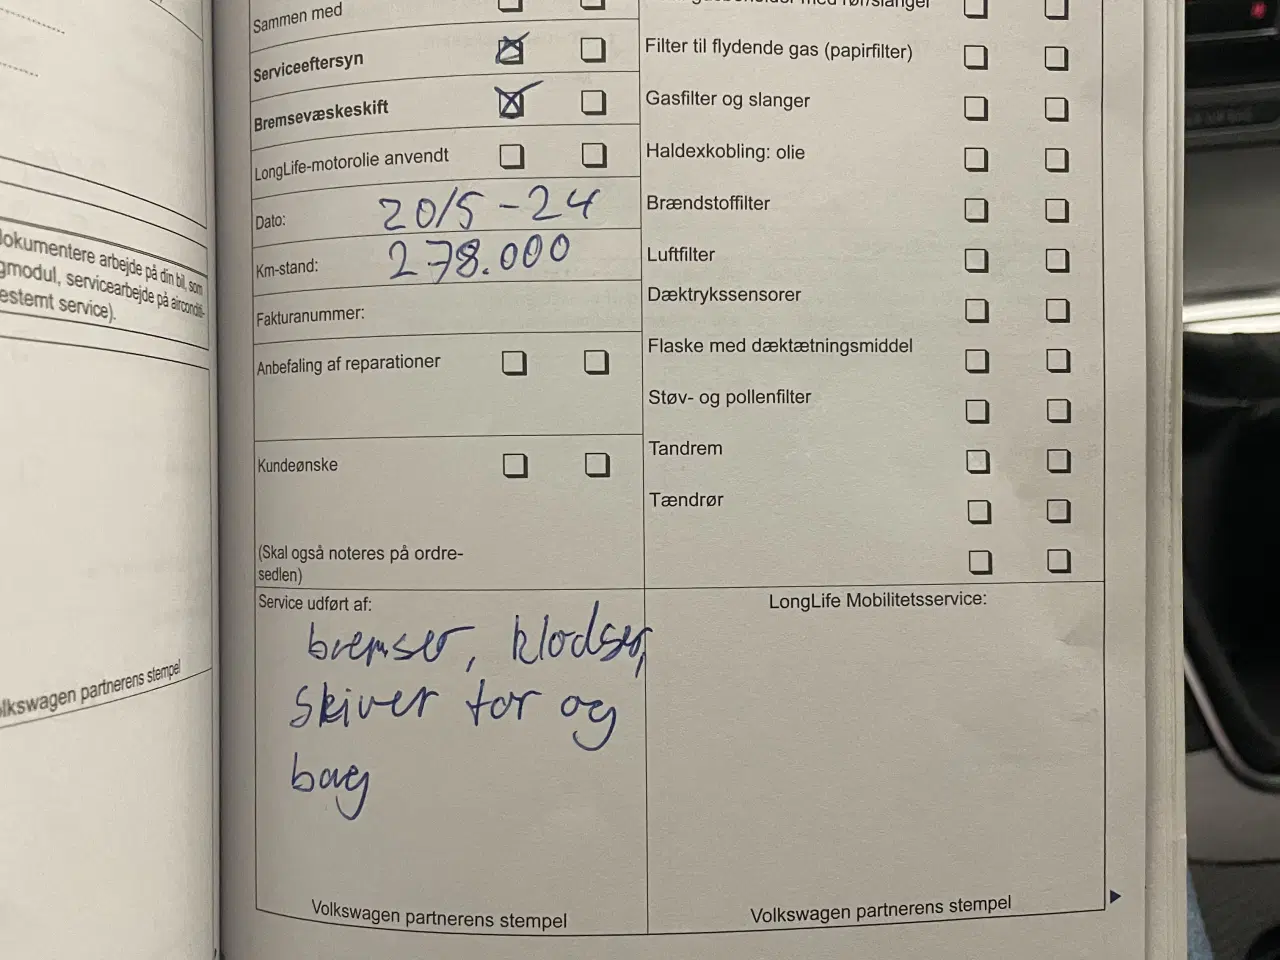 Sammen med
Serviceeftersyn
Bremsevæskeskift
LongLife-motorolie anvendt
Dato: 20/5-24
Km-stand: 278.000
Fakturanummer:
Anbefaling af reparationer
Kundeønske
(Skal også noteres på ordre-
sedlen)
Service udført af:
bremser, klodser,
skiver for og
bag
Volkswagen partnerens stempel
Filter til flydende gas (papirfilter)
Gasfilter og slanger
Haldexkobling: olie
Brændstoffilter
Luftfilter
Dæktrykssensorer
Flaske med dæktætningsmiddel
Støv- og pollenfilter
Tandrem
Tændrør
LongLife Mobilitetsservice:
Volkswagen partnerens stempel
dokumentere arbejde på din bil, som
servicearbejde på
service).
partnerens stempel